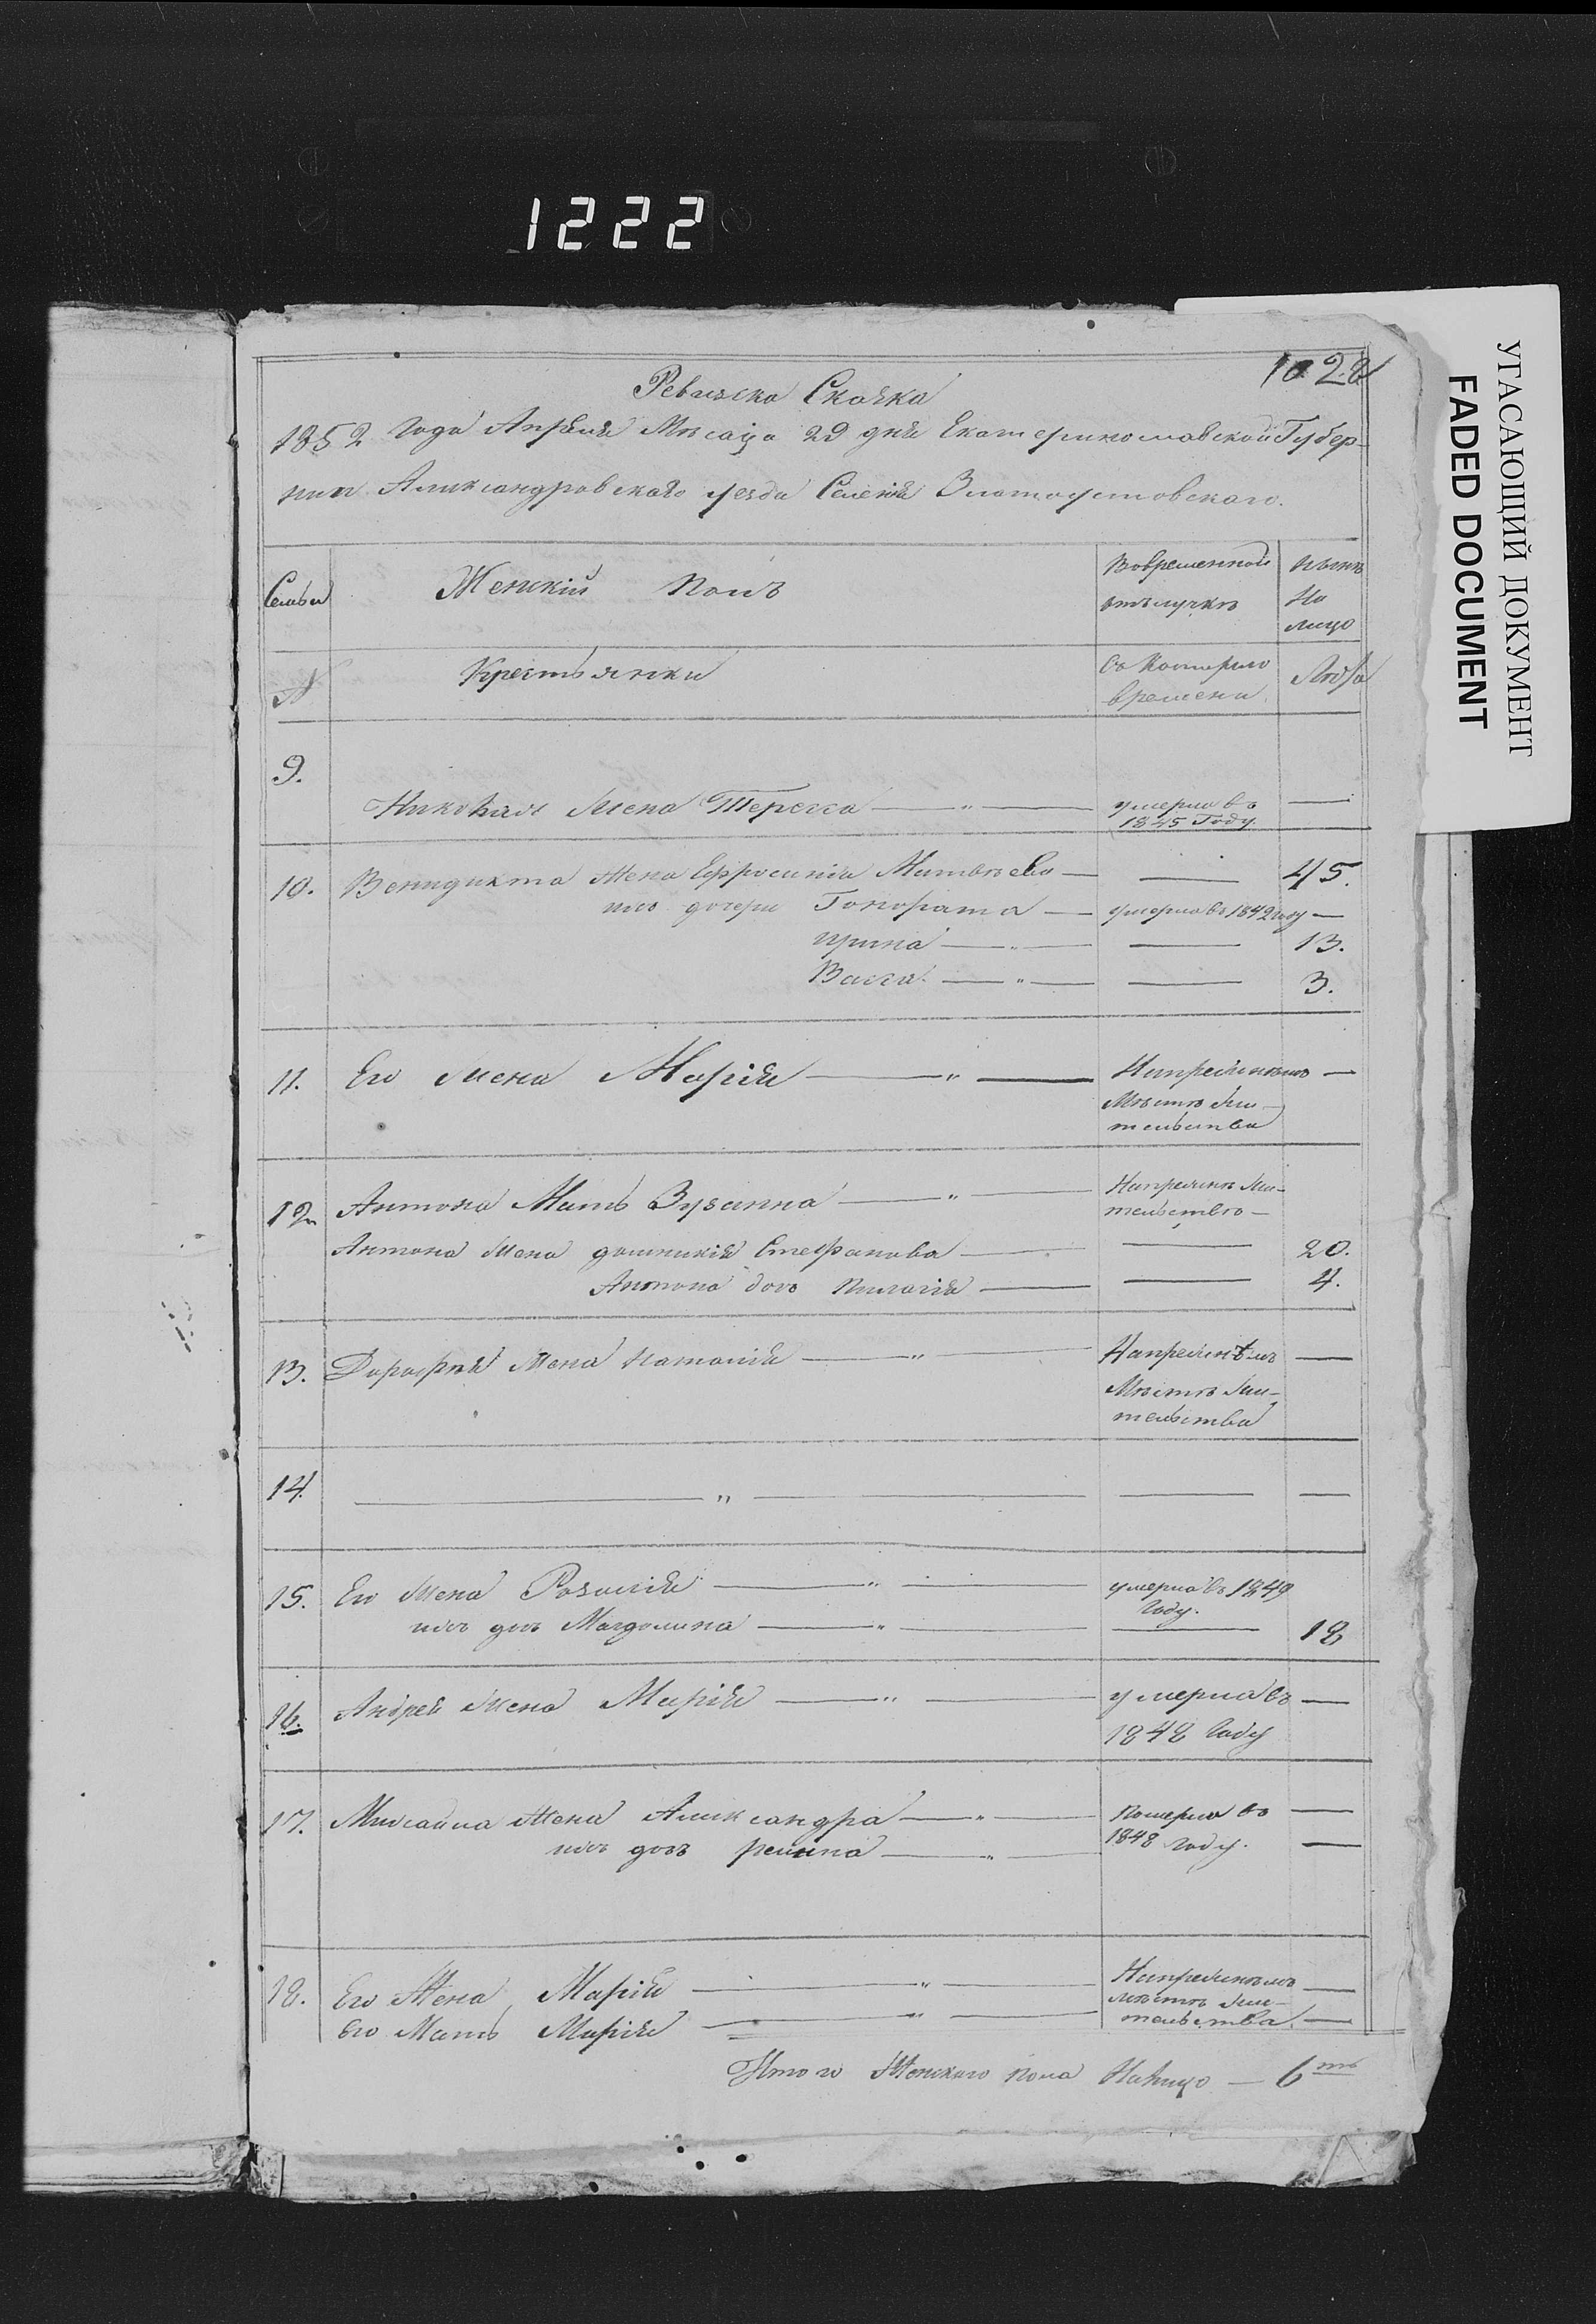 1222
УГАСАЮЩИЙ ДОКУМЕНТ
FADED DOCUMENT
1028
Ревизска Сказка
1852 года Апреля Мѣсаца 29 дня Екатеринославской Губер-
нии Александровского уезда Селенія Златоустовского.
Семьи
Женскій Полъ
Вовременной отълучкѣ
Нынѣ На лицо
№
Крестьянки
Съ Котораго времени
Лѣта
9.
Николая Жена Тересса — " — умерла въ 1845 Году. —
10. Венидикта Жена Ефросинія Матвѣева — — 45.
ихъ дочери Гонората — умерла въ 1842 году —
ирина — " — — 13.
Васса — " — — 3.
11. Его жена Марія — " — Напрежнѣмъ Мѣстѣ жи-
тельства —
12. Антона Мать Зузанна — " — Напрежнѣ жи-
тельство —
Антона жена домникія Стефанова — — 20.
Антона доч пилагія — — 4.
13. Дорофѣя Жена Наталія — " — Напрежнѣмъ —
Мѣстѣ жи-
тельства
14. — " — — —
15. Его жена Розалія — " — умерла въ 1849
Году.
ихъ доч Магдолина — " — — 18
16. Андрея жена Марія — " — умерла въ —
1848 Году
17. Михайла Жена Александра — " — Померла въ —
1848 году.
ихъ доч регина — " — —
18. Его Жена Марія — " — Напрежнѣмъ —
мѣстѣ жи-
Его Мать Марія — " — тельства —
Итого Женского пола Налицо — 6ть